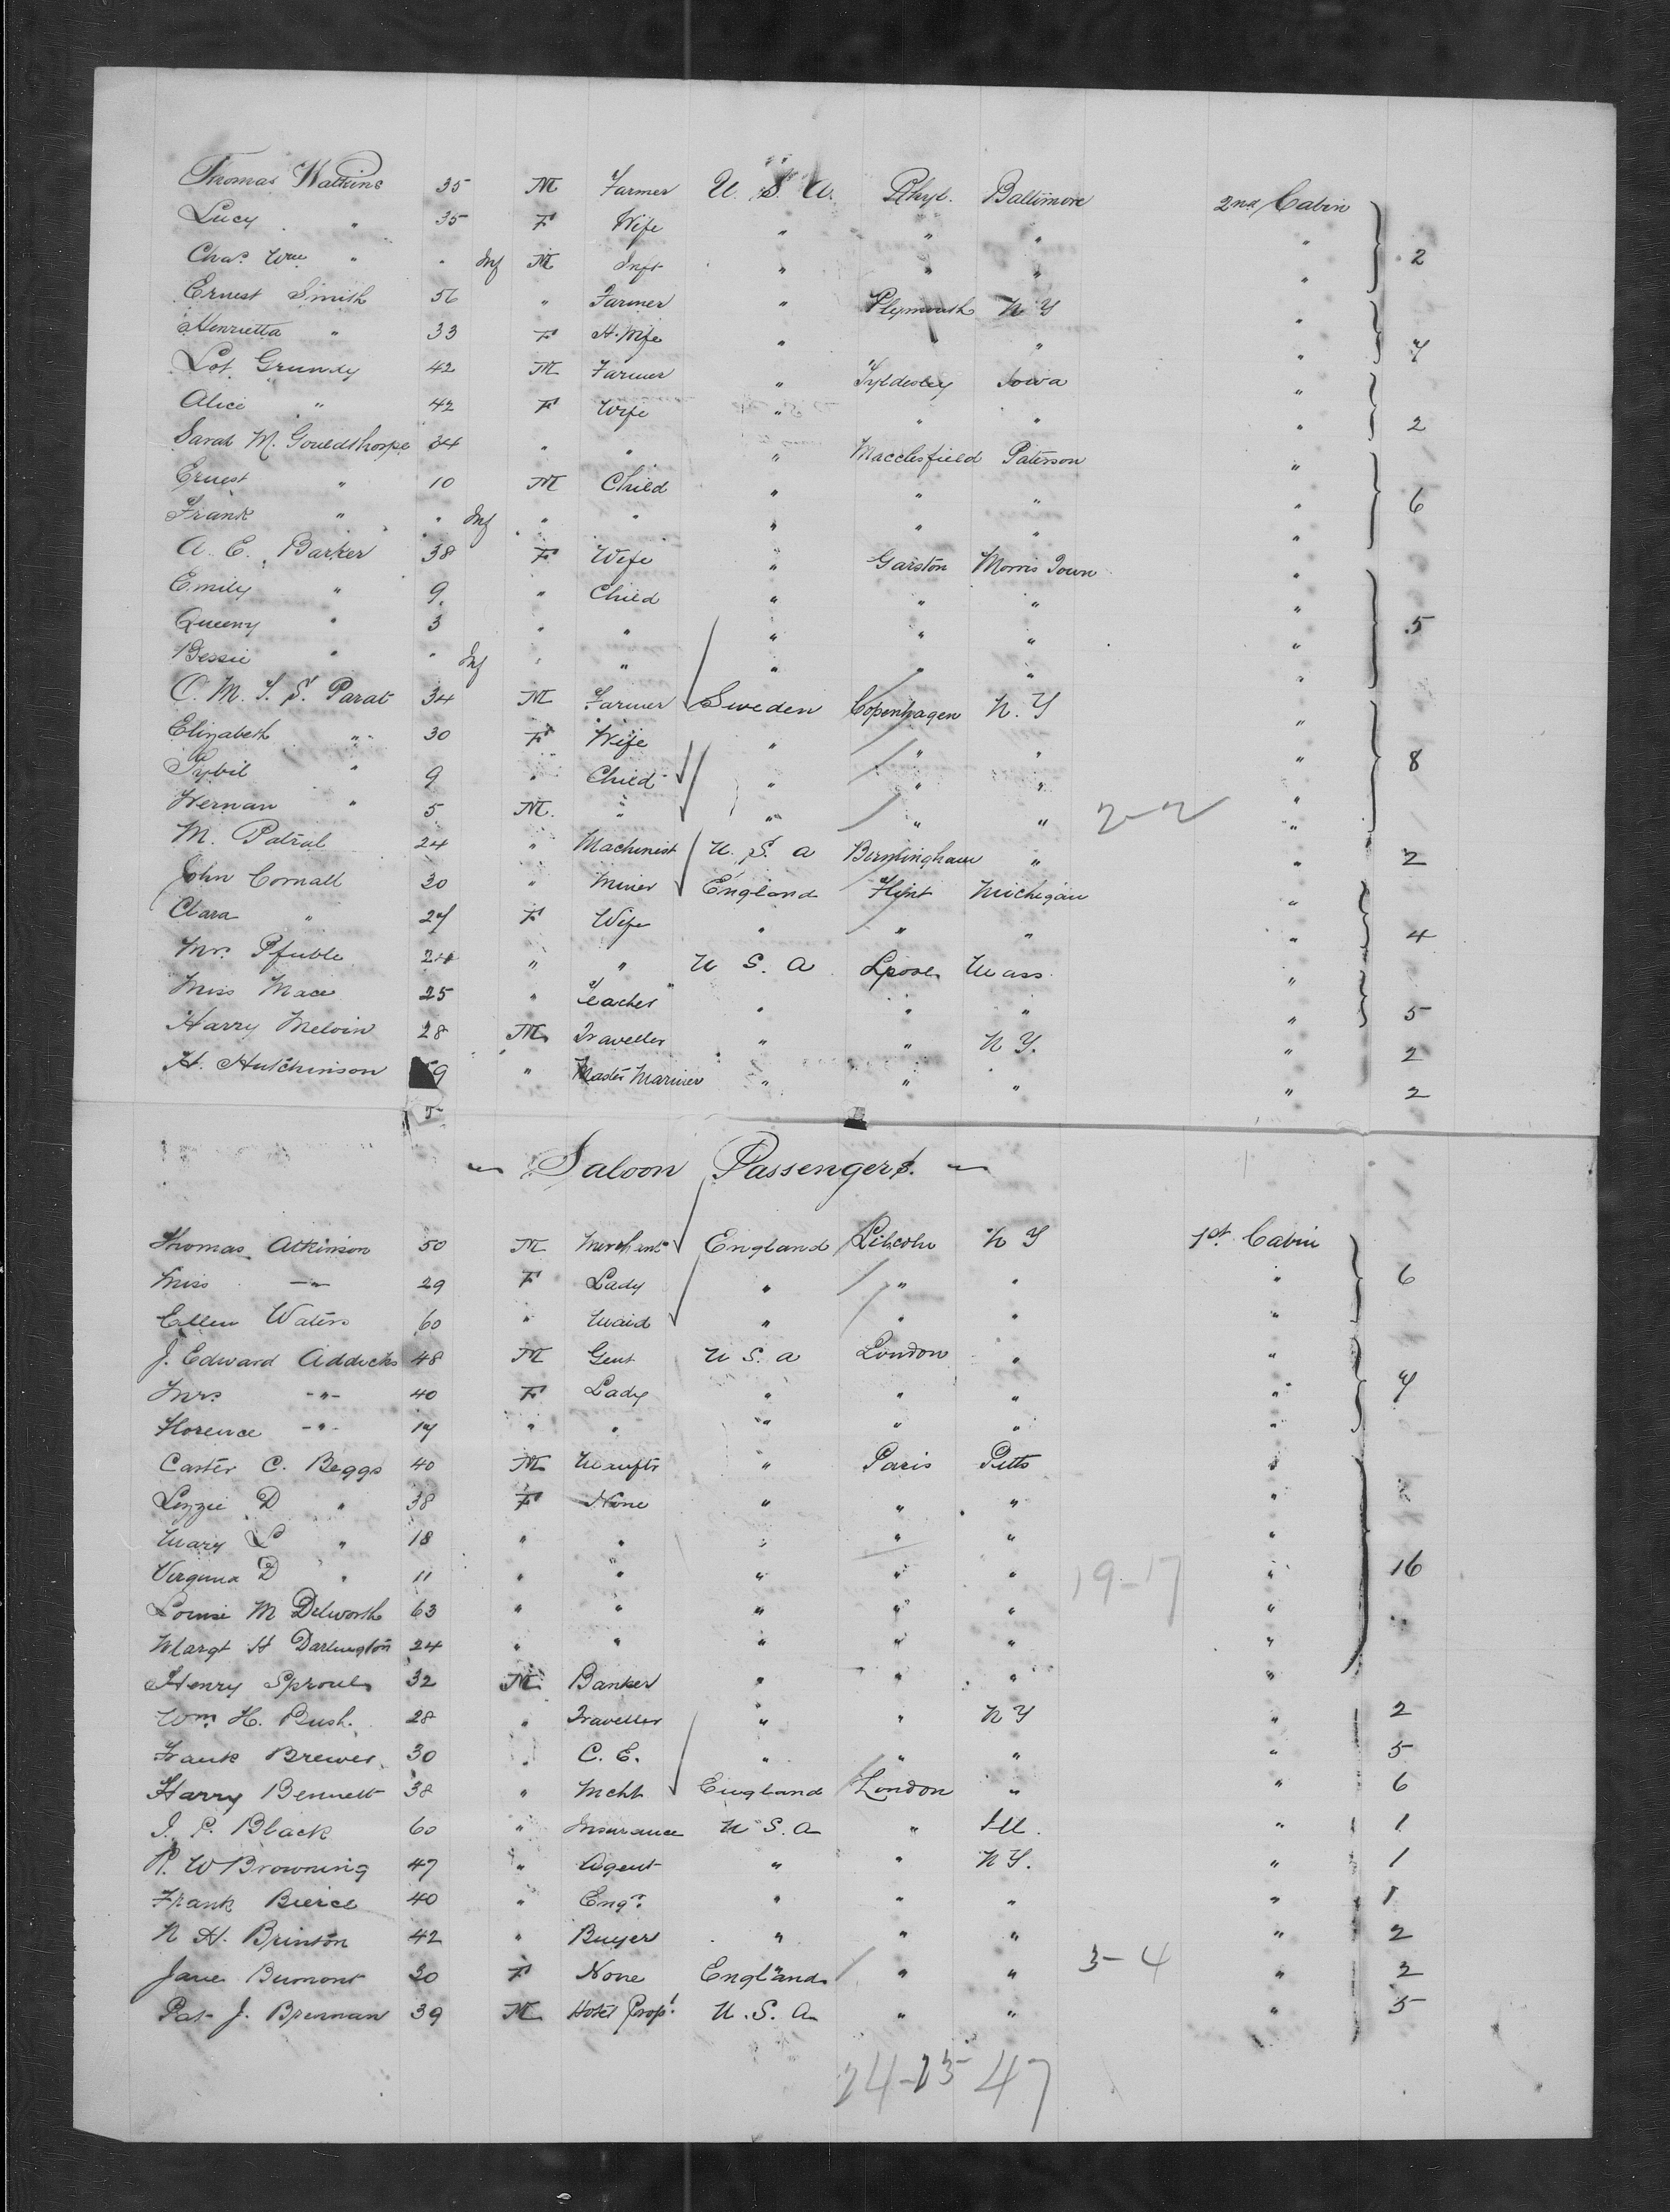 Thomas Watkins 35 M Farmer U. S. A. Rhyl. Baltimore 2nd Cabin
Lucy " 35 F Wife " " " "
Chas. Wm " " Inf M Inft " " " " 2
Ernest Smith 56 " Farmer " Plymouth N Y "
Henrietta " 33 F H. Wife " " " 7
Lot Grundy 42 M Farmer " Tyldesley Iowa "
Alice " 42 F Wife " " " " 2
Sarah M. Gouldthorpe 34 " " " Macclesfield Paterson "
Ernest " 10 M Child " " " " 6
Frank " " Inf " " " " " "
A. E. Barker 38 F Wife " Garston Morris Town "
Emily " 9 " Child " " " "
Queeny " 3 " " " " " " 5
Bessie " " Inf " " " " " "
O. M. T. S. Parat 34 M Farmer Sweden Copenhagen N. Y "
Elizabeth " 30 F Wife " " " "
Sybil " 9 " Child " " " " 8
Hernan " 5 M. " " " " 2-2 "
M. Patrial 24 " Machinist U. S. A Birmingham " " 2
John Cornall 30 " Miner England Flint Michigan "
Clara " 27 F Wife " " " " 4
Mrs. Pfuble 24 " " U S. A Lpool Mass. "
Miss Mace 25 " Teacher " " " " 5
Harry Melvin 28 M Traveller " " N Y. " 2
H. Hutchinson 59 " Master Mariner " " " " 2
Saloon Passengers.
Thomas Atkinson 50 M Merchant England Lincoln N Y 1st Cabin
Miss —"— 29 F Lady " " " " 6
Ellen Waters 60 " Maid " " " "
J. Edward Addicks 48 M Gent U S. A London " "
Mrs. -"- 40 F Lady " " " " 7
Florence -"- 17 " " " " " "
Carter C. Beggs 40 M Manuftr " Paris Pitts "
Lizzie D " 38 F None " " " "
Mary L " 18 " " " " " "
Virginia D " 11 " " " " " 19-17 " 16
Louise M Delworth 63 " " " " " "
Margt H Darlington 24 " " " " " "
Henry Sproul 32 M Banker " " " "
Wm. H. Bush. 28 " Traveller " " N Y " 2
Frank Brewer. 30 " C. E. " " " " 5
Harry Bennett 38 " Mcht England London " " 6
J. P. Black 60 " Insurance U S. A " Ill. " 1
R. W Browning 47 " Agent " " N Y. " 1
Frank Bierce 40 " Engr. " " " " 1
N H. Brinton 42 " Buyer " " " " 2
Jane Bumont 30 F None England " " 3-4 " 2
Pat J. Brennan 39 M Hotel Propr. U. S. A " " " 5
24-23 47